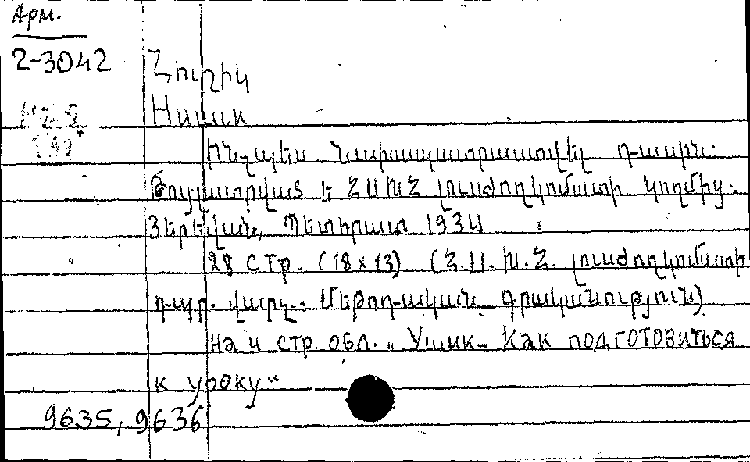 Арм.
2-3042
Հուշիկ
Ինչպես նախապատրաստվել դասին.
Թույլատրված է ՀՍԽՀ լուսժողկոմատի կողմից.
Յերեվան, Պետհրատ 1934
28 стр. (18x13) (Հ.Ս.Խ.Հ. լուսժողկոմատի
դպր. վարչ. Մեթոդական գրականություն)
на 4 стр. обл. " Ушик - Как подготовиться
к уроку"
9635, 9636